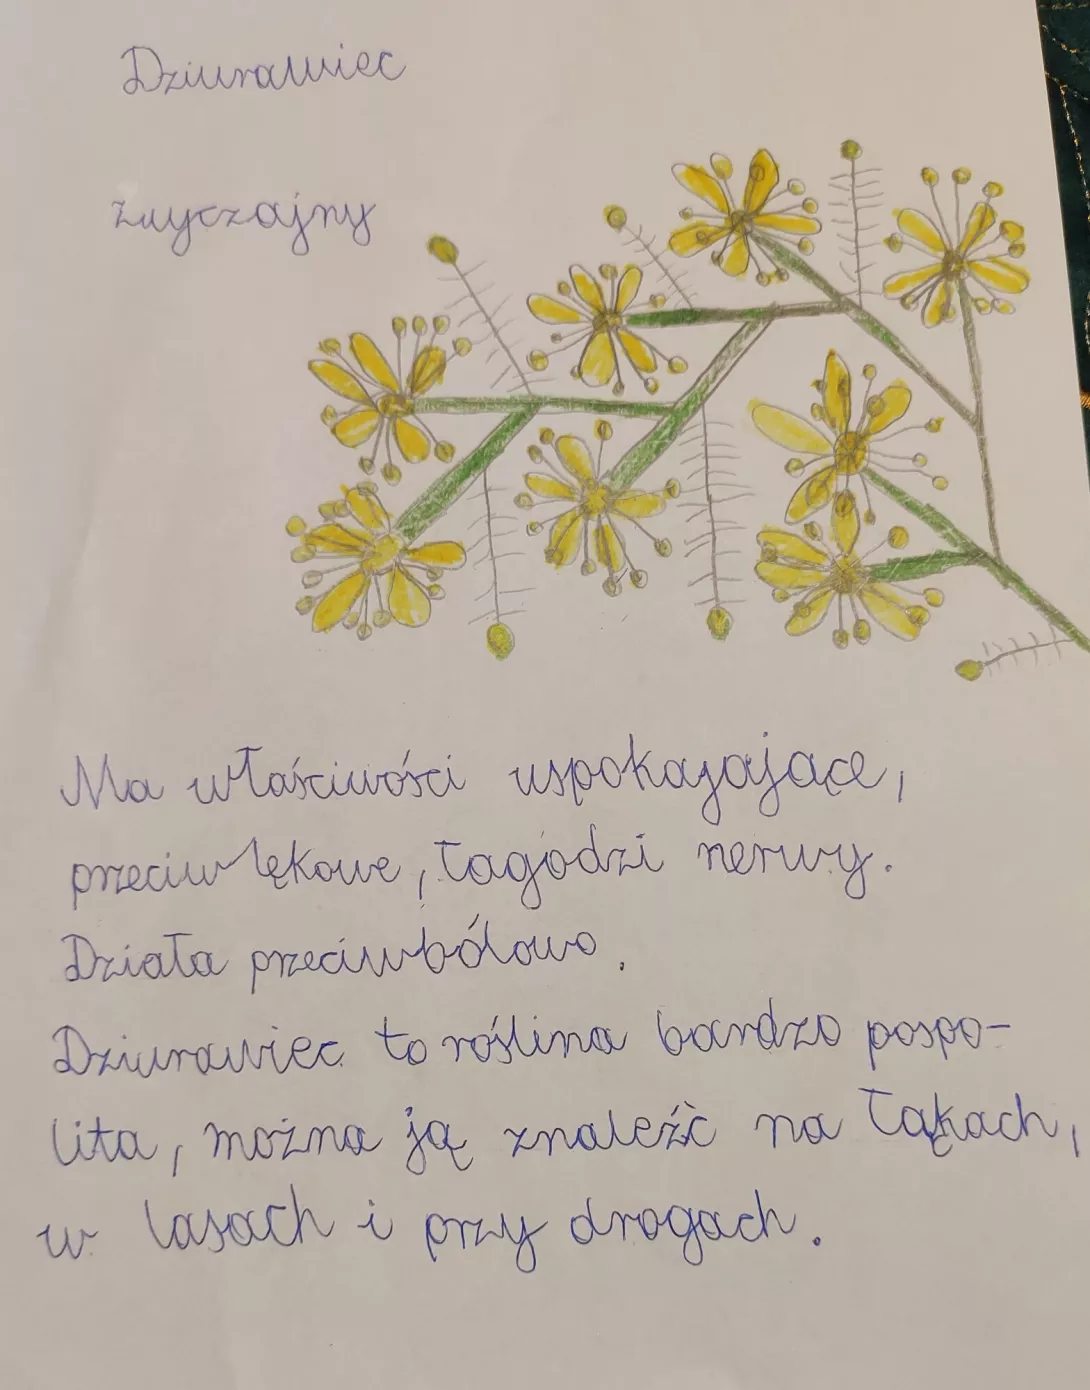 Dziurawiec
zwyczajny
Ma właściwości uspokajające,
przeciwlękowe, łagodzi nerwy.
Działa przeciwbólowo.
Dziurawiec to roślina bardzo pospo-
lita, można ją znaleźć na łąkach,
w lasach i przy drogach.